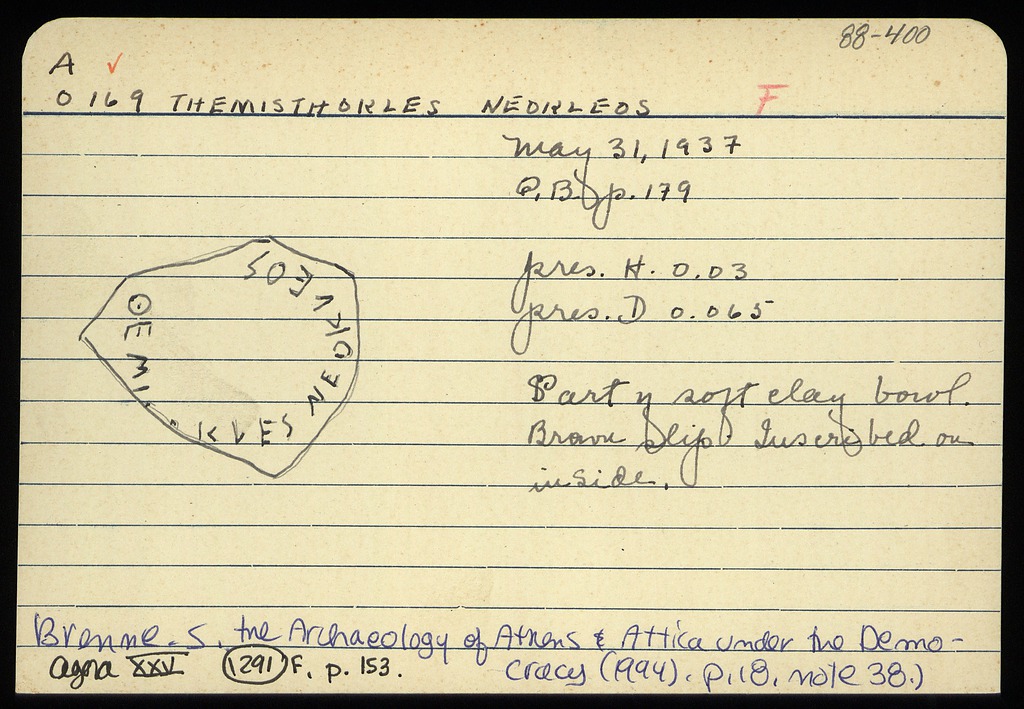 88-400
A ✓
O 169 THEMISTHOKLES NEOKLEOS F
May 31, 1937
P.B. p. 179
pres. H. 0.03
pres. D 0.065
ΘEMI KVES
NEOKVEOS
Part of soft clay bowl.
Brown slip. Inscribed on
inside.
Brenne. S, the Archaeology of Athens & Attica under the Demo-
cracy (1994). p.18, note 38.)
Agora XXV 1291 F, p. 153.